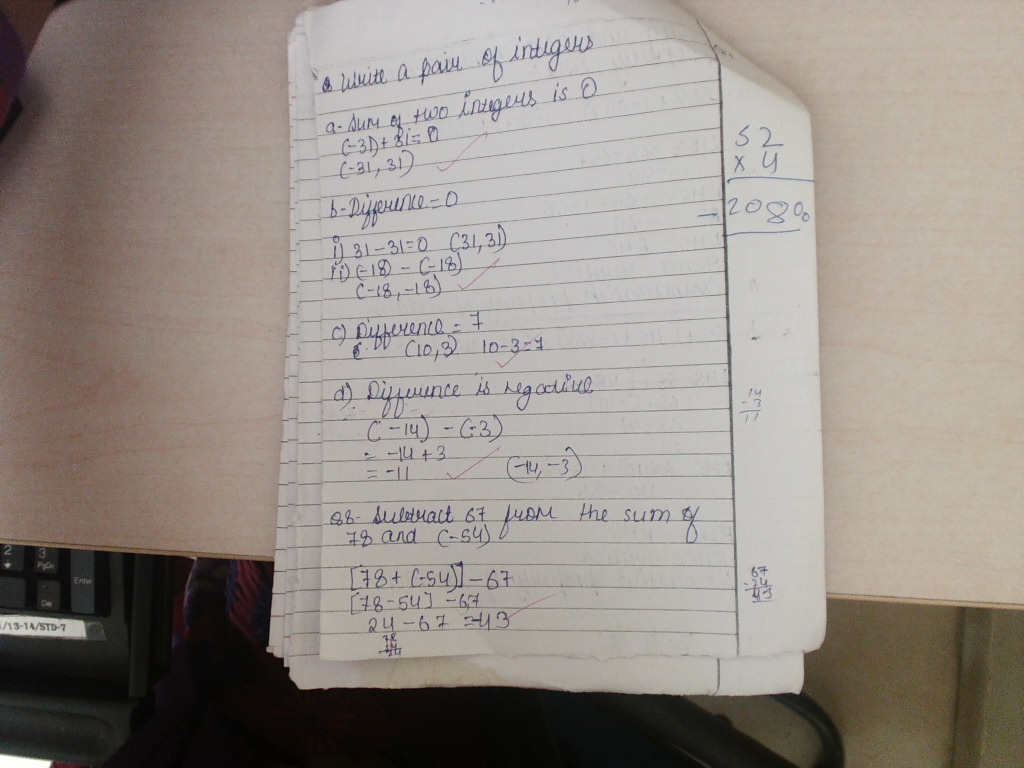 Write a pair of integers
a- Sum of two integers is 0
(-31)+31=0
(-31, 31)
b- Difference = 0
i) 31-31=0 (31,31)
ii) (-18) - (-18)
(-18, -18)
c) Difference = 7
(10,3) 10-3=7
d) Difference is negative
(-14) - (-3)
= -14+3
= -11 (-14, -3)
Q8- Subtract 67 from the sum of
78 and (-54)
[78 + (-54)] - 67
[78-54] -67
24 - 67 = -43
52
x 4
208
14
-3
11
67
-24
43
2
3
PgDn
Enter
Del
/13-14/STD-7